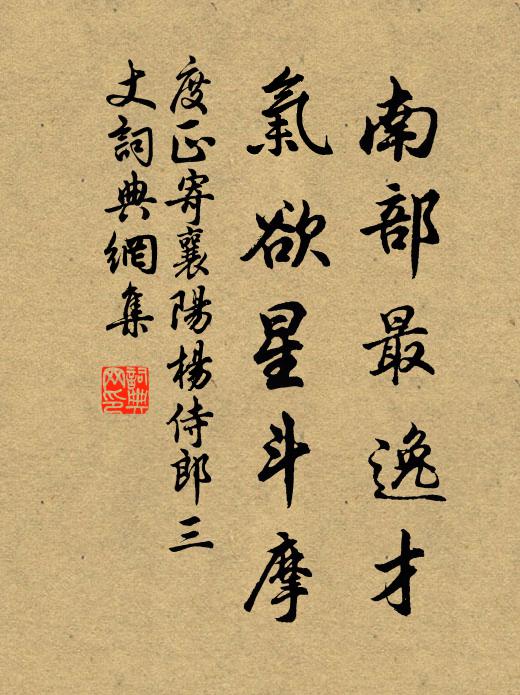 南部最逸才
氣欲星斗摩
度正寄襄陽楊侍郎三
丈詞典網集
詞典
网印